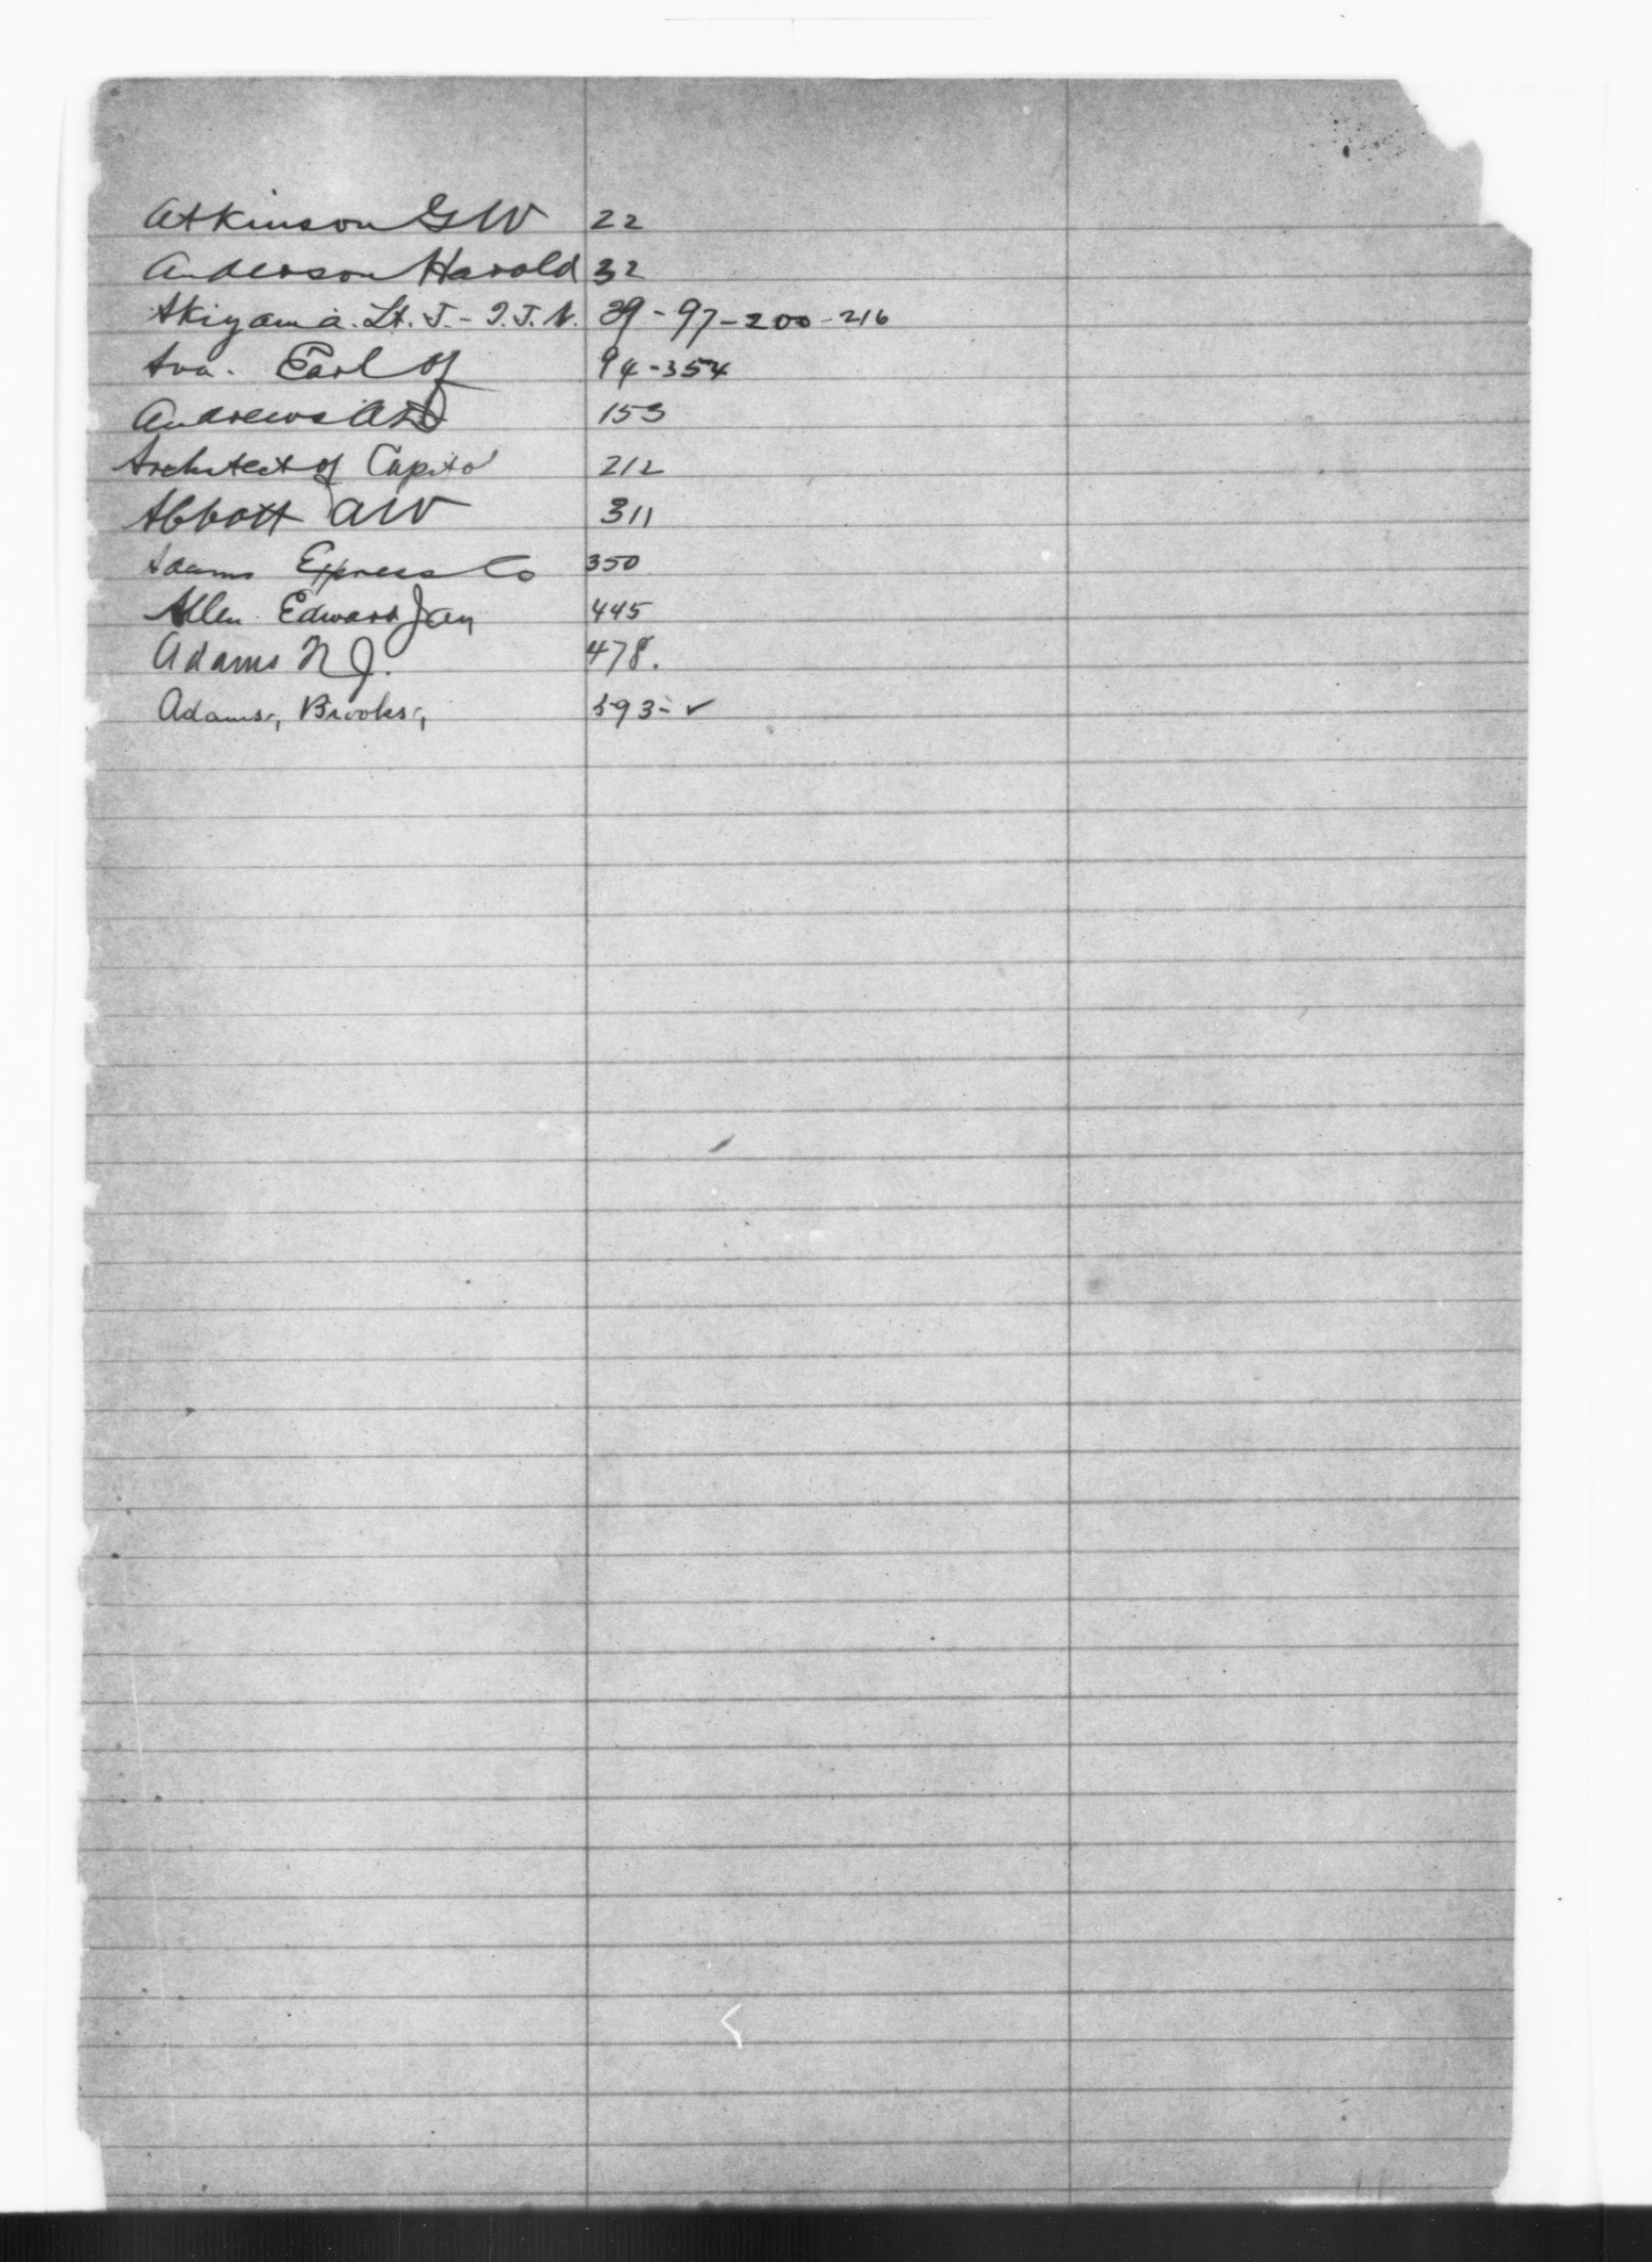 Atkinson G W 22
Anderson Harold 32
Akiyama. Lt. J. - I. J. N. 39 - 97 - 200 - 216
Ava. Earl of 94 - 354
Andrews 153
Architect of Capitol 212
Abbott A W 311
Adams Express Co 350
Allen Edward Jay 445
Adams N J. 478.
Adams, Brooks, 593- ✓